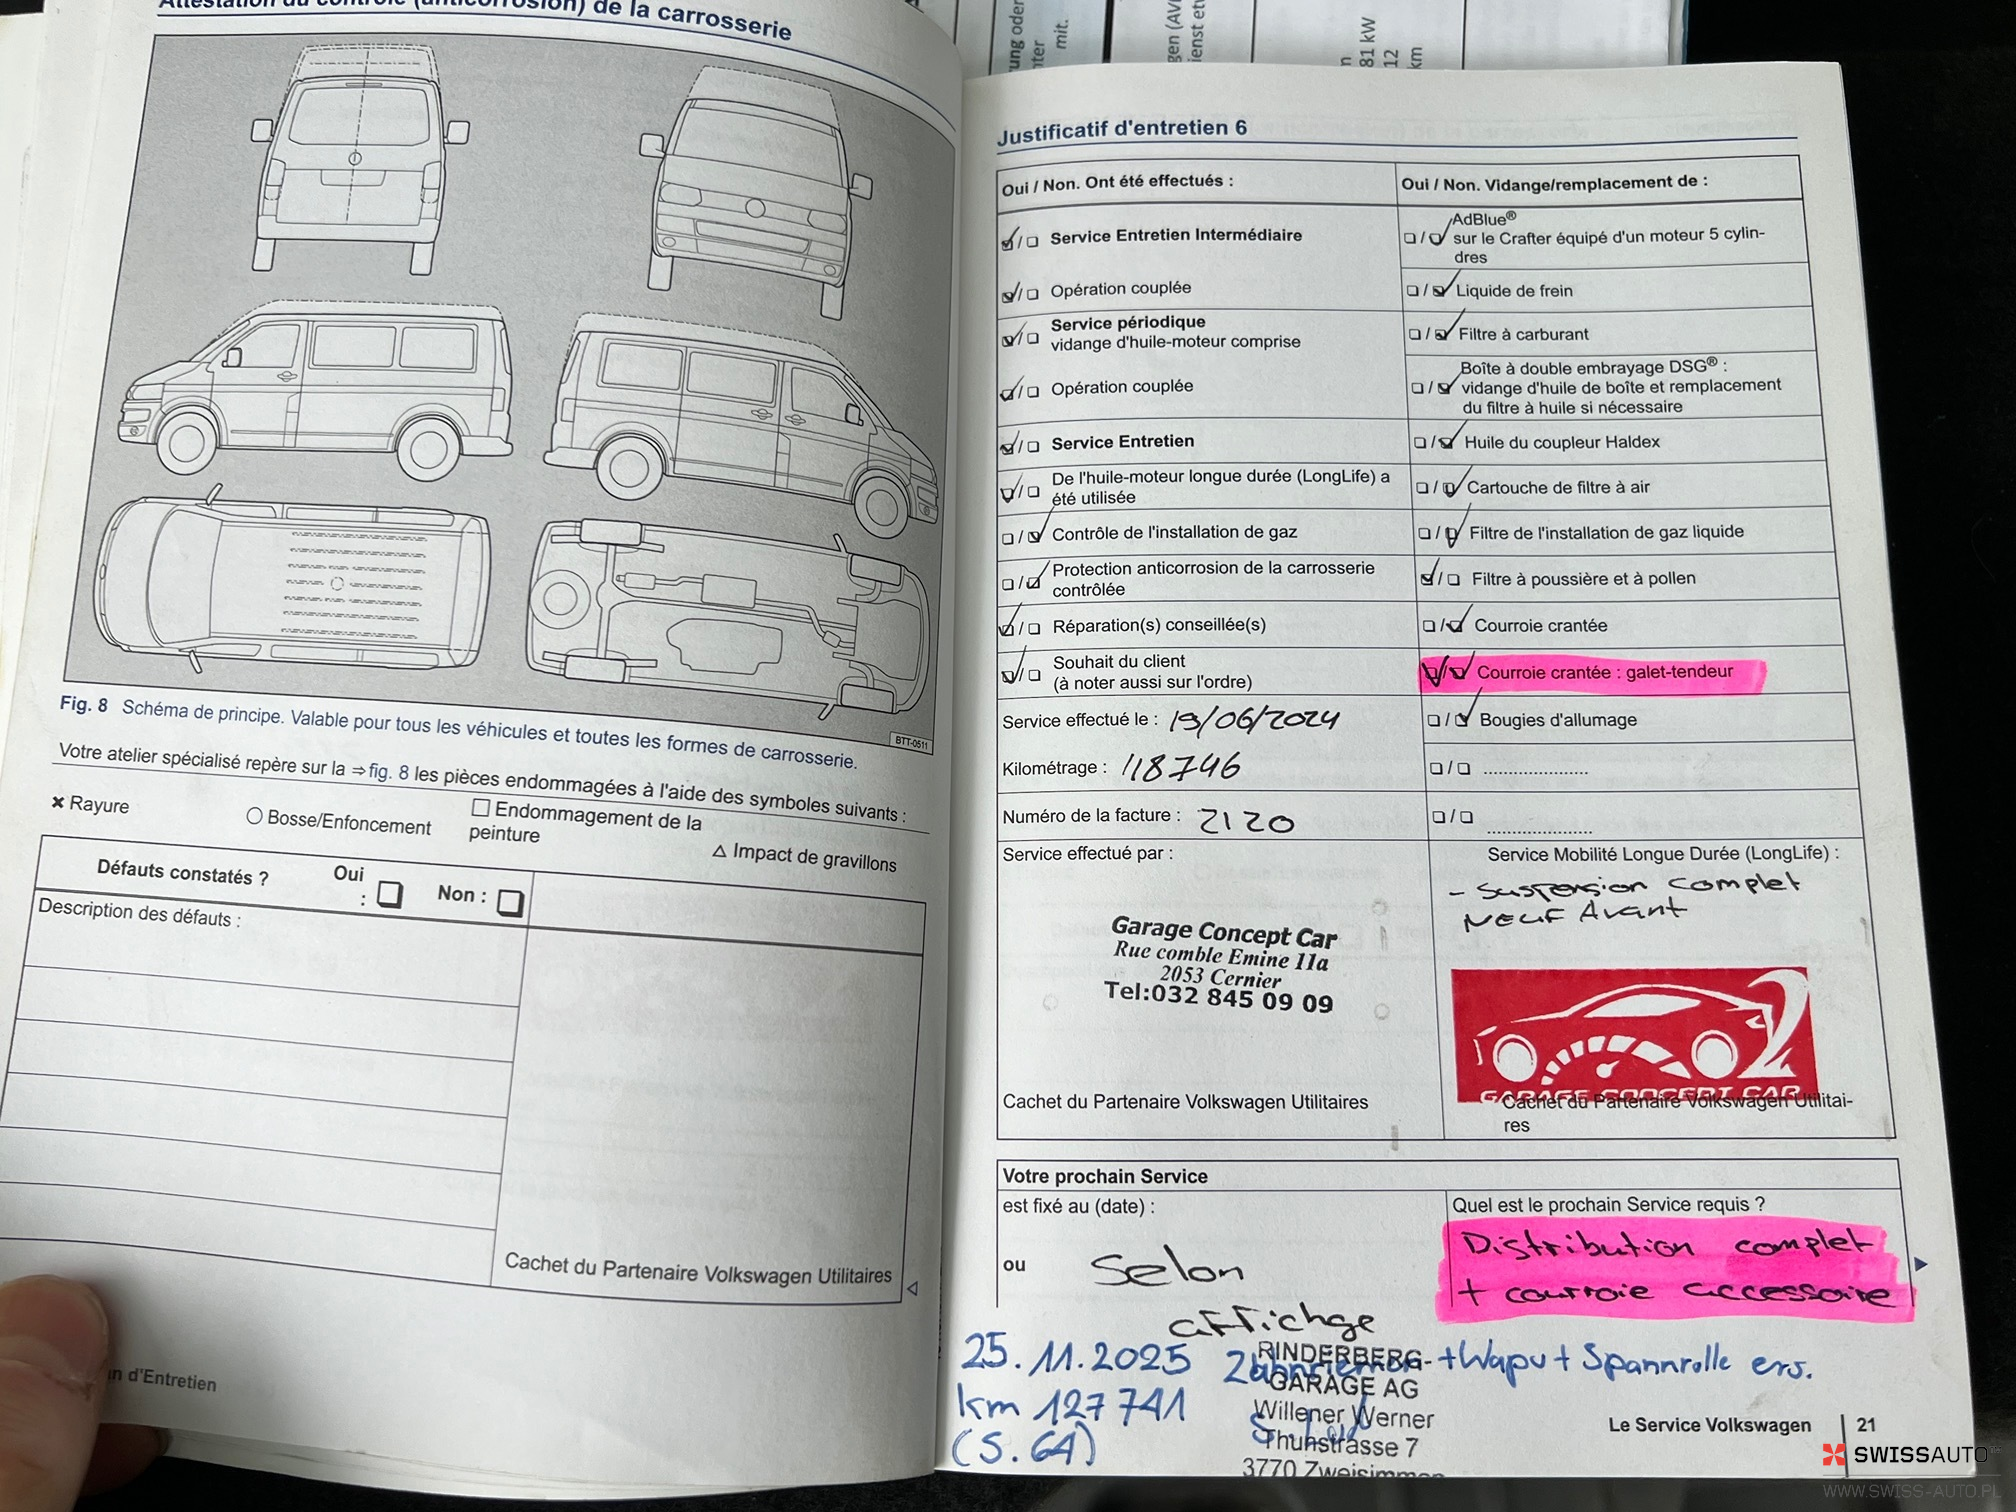 Attestation du contrôle (anticorrosion) de la carrosserie
BTT-0511
Fig. 8 Schéma de principe. Valable pour tous les véhicules et toutes les formes de carrosserie.
Votre atelier spécialisé repère sur la ⇒ fig. 8 les pièces endommagées à l'aide des symboles suivants :
✖ Rayure
○ Bosse/Enfoncement
□ Endommagement de la
peinture
△ Impact de gravillons
Défauts constatés ?
Oui
: □
Non : □
Description des défauts :
Cachet du Partenaire Volkswagen Utilitaires
n d'Entretien
mit.
81 kW
12
km
Justificatif d'entretien 6
Oui / Non. Ont été effectués :
Service Entretien Intermédiaire
Opération couplée
Service périodique
vidange d'huile-moteur comprise
Opération couplée
Service Entretien
De l'huile-moteur longue durée (LongLife) a
été utilisée
Contrôle de l'installation de gaz
Protection anticorrosion de la carrosserie
contrôlée
Réparation(s) conseillée(s)
Souhait du client
(à noter aussi sur l'ordre)
Service effectué le : 19/06/2024
Kilométrage : 118746
Numéro de la facture : 2120
Oui / Non. Vidange/remplacement de :
AdBlue®
sur le Crafter équipé d'un moteur 5 cylin-
dres
Liquide de frein
Filtre à carburant
Boîte à double embrayage DSG® :
vidange d'huile de boîte et remplacement
du filtre à huile si nécessaire
Huile du coupleur Haldex
Cartouche de filtre à air
Filtre de l'installation de gaz liquide
Filtre à poussière et à pollen
Courroie crantée
Courroie crantée : galet-tendeur
Bougies d'allumage
□ / □ ......................
□ / □ ......................
Service effectué par :
Garage Concept Car
Rue comble Emine 11a
2053 Cernier
Tel:032 845 09 09
Cachet du Partenaire Volkswagen Utilitaires
Service Mobilité Longue Durée (LongLife) :
- suspension complet
NEUF Avant
GARAGE CONCEPT CAR
Cachet du Partenaire Volkswagen Utilitai-
res
Votre prochain Service
est fixé au (date) :
ou
Selon
affichge
Quel est le prochain Service requis ?
Distribution complet
+ courroie accessoire
25.11.2025 Zahnriemen +Wapu + Spannrolle ers.
km 127741
(S. 64)
RINDERBERG-
GARAGE AG
Willener Werner
Thunstrasse 7
3770 Zweisimmen
Le Service Volkswagen 21
SWISSAUTO
WWW.SWISS-AUTO.PL